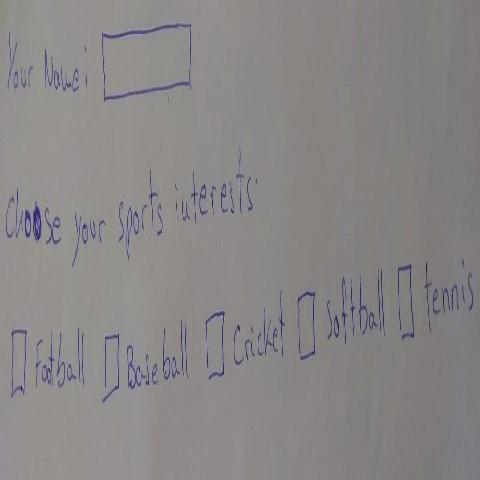 Your Name:
Choose your sports interests:
Football Baseball Cricket Softball tennis